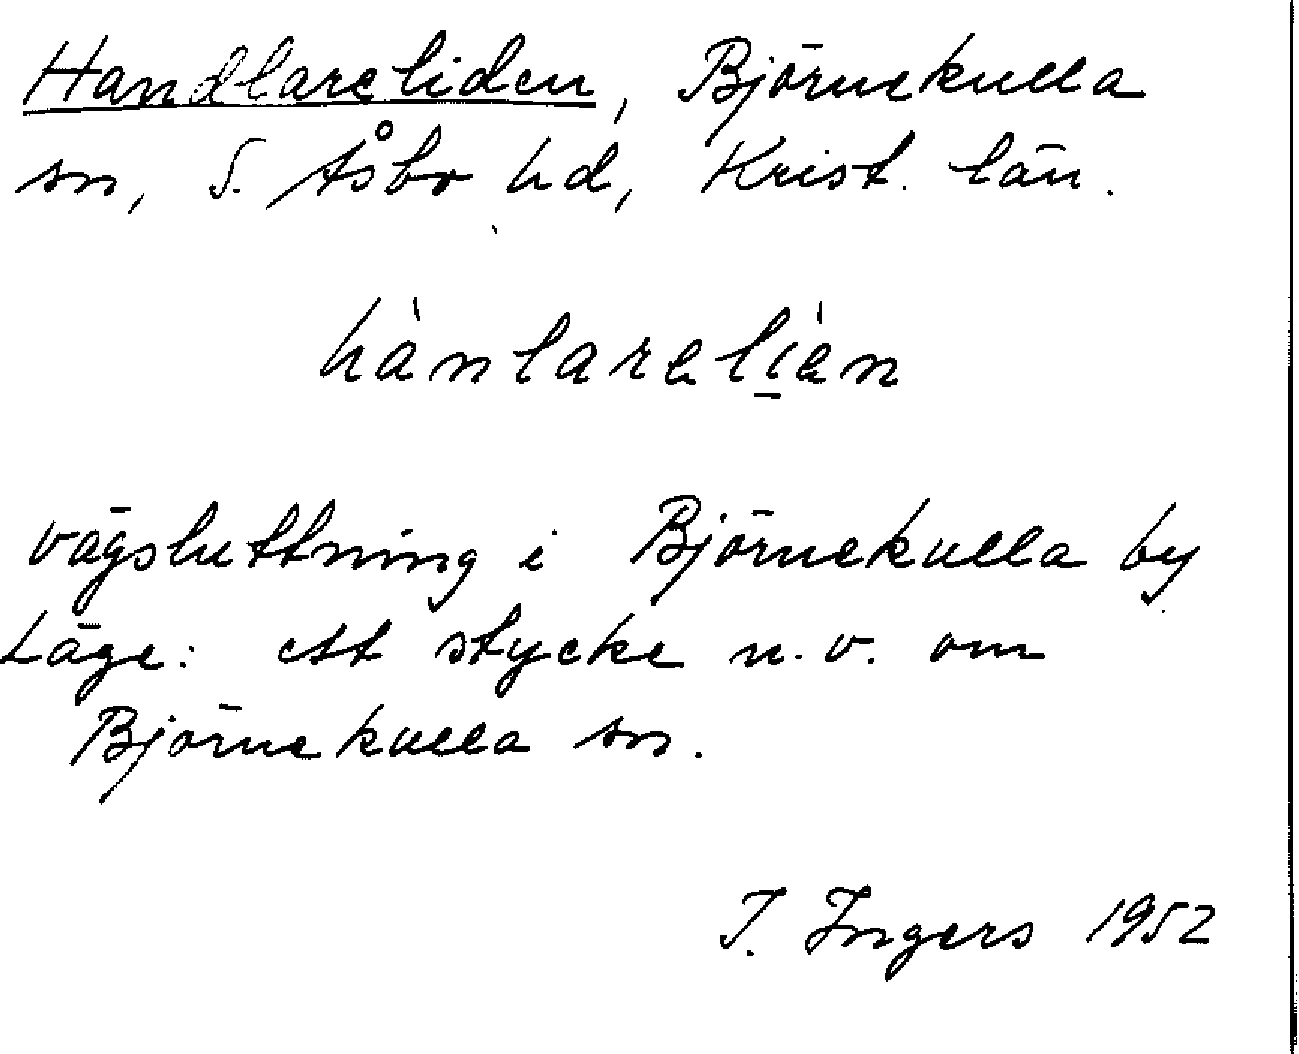 Handlareliden, Björnekulla
sn, S. Åsbo hd, Krist. län.
hànlarelìen
vägsluttning i Björnekulla by
Läge: ett stycke n.v. om
Björnekulla sn.
I. Ingers 1952